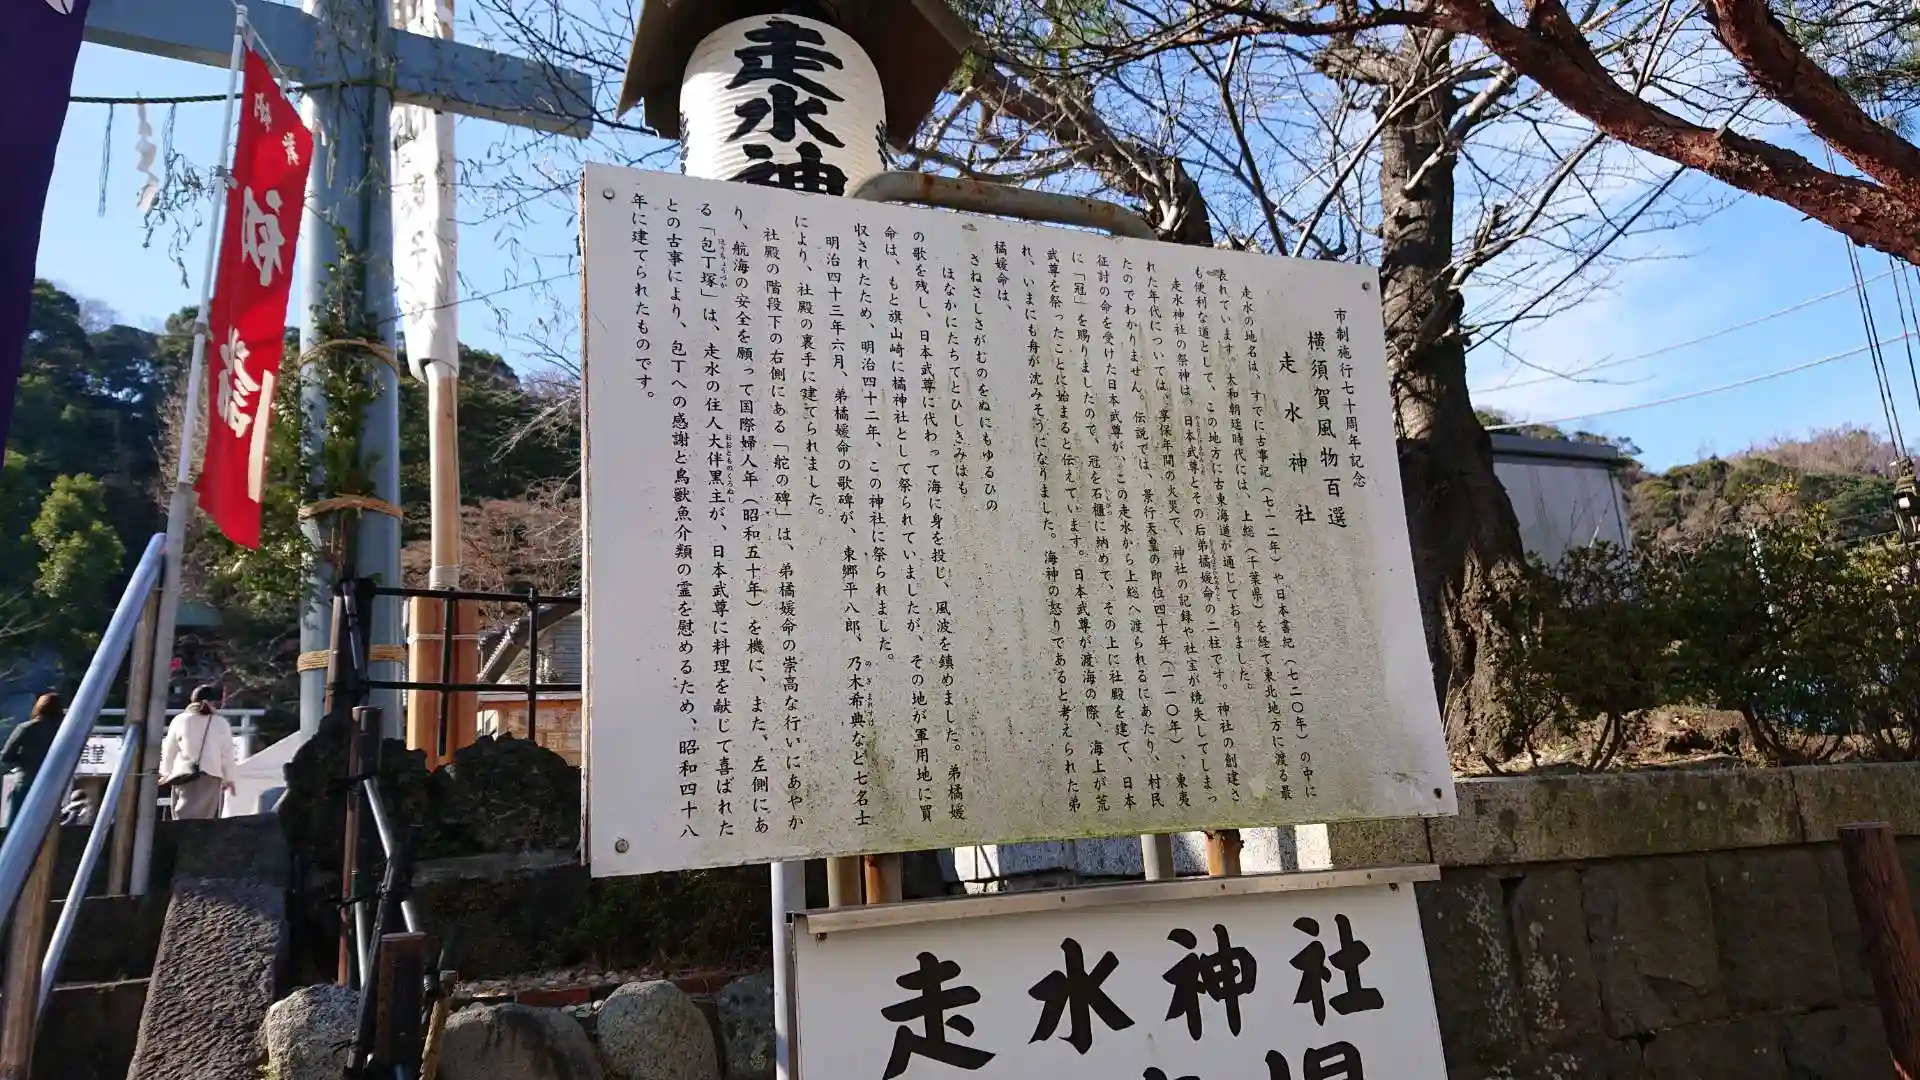 市制施行七十周年記念
横須賀風物百選
走水神社
走水の地名は、すでに古事記（七一二年）や日本書紀（七二〇年）の中に
表れています。大和朝廷時代には、上総（千葉県）を経て東北地方に渡る最
も便利な道として、この地方に古東海道が通じておりました。
走水神社の祭神は、日本武尊とその后弟橘媛命の二柱です。神社の創建さ
れた年代については、享保年間の火災で、神社の記録や社宝が焼失してしまっ
たのでわかりません。伝説では、景行天皇の即位四十年（一一〇年）、東夷
征討の命を受けた日本武尊が、この走水から上総へ渡られるにあたり、村民
に「冠」を賜りましたので、冠を石櫃に納めて、その上に社殿を建て、日本
武尊を祭ったことに始まると伝えています。日本武尊が渡海の際、海上が荒
れ、いまにも舟が沈みそうになりました。海神の怒りであると考えられた弟
橘媛命は、
さねさしさがむのをぬにもゆるひの
ほなかにたちてとひしきみはも
の歌を残し、日本武尊に代わって海に身を投じ、風波を鎮めました。弟橘媛
命は、もと旗山崎に橘神社として祭られていましたが、その地が軍用地に買
収されたため、明治四十二年、この神社に祭られました。
明治四十三年六月、弟橘媛命の歌碑が、東郷平八郎、乃木希典など七名士
のぎまれすけ
により、社殿の裏手に建てられました。
社殿の階段下の右側にある「舵の碑」は、弟橘媛命の崇高な行いにあやか
り、航海の安全を願って国際婦人年（昭和五十年）を機に、また、左側にあ
る「包丁塚」は、走水の住人大伴黒主が、日本武尊に料理を献じて喜ばれた
ほうちょうづか
おおとものくろぬし
との古事により、包丁への感謝と鳥獣魚介類の霊を慰めるため、昭和四十八
年に建てられたものです。
走水神
初詣
走水神社